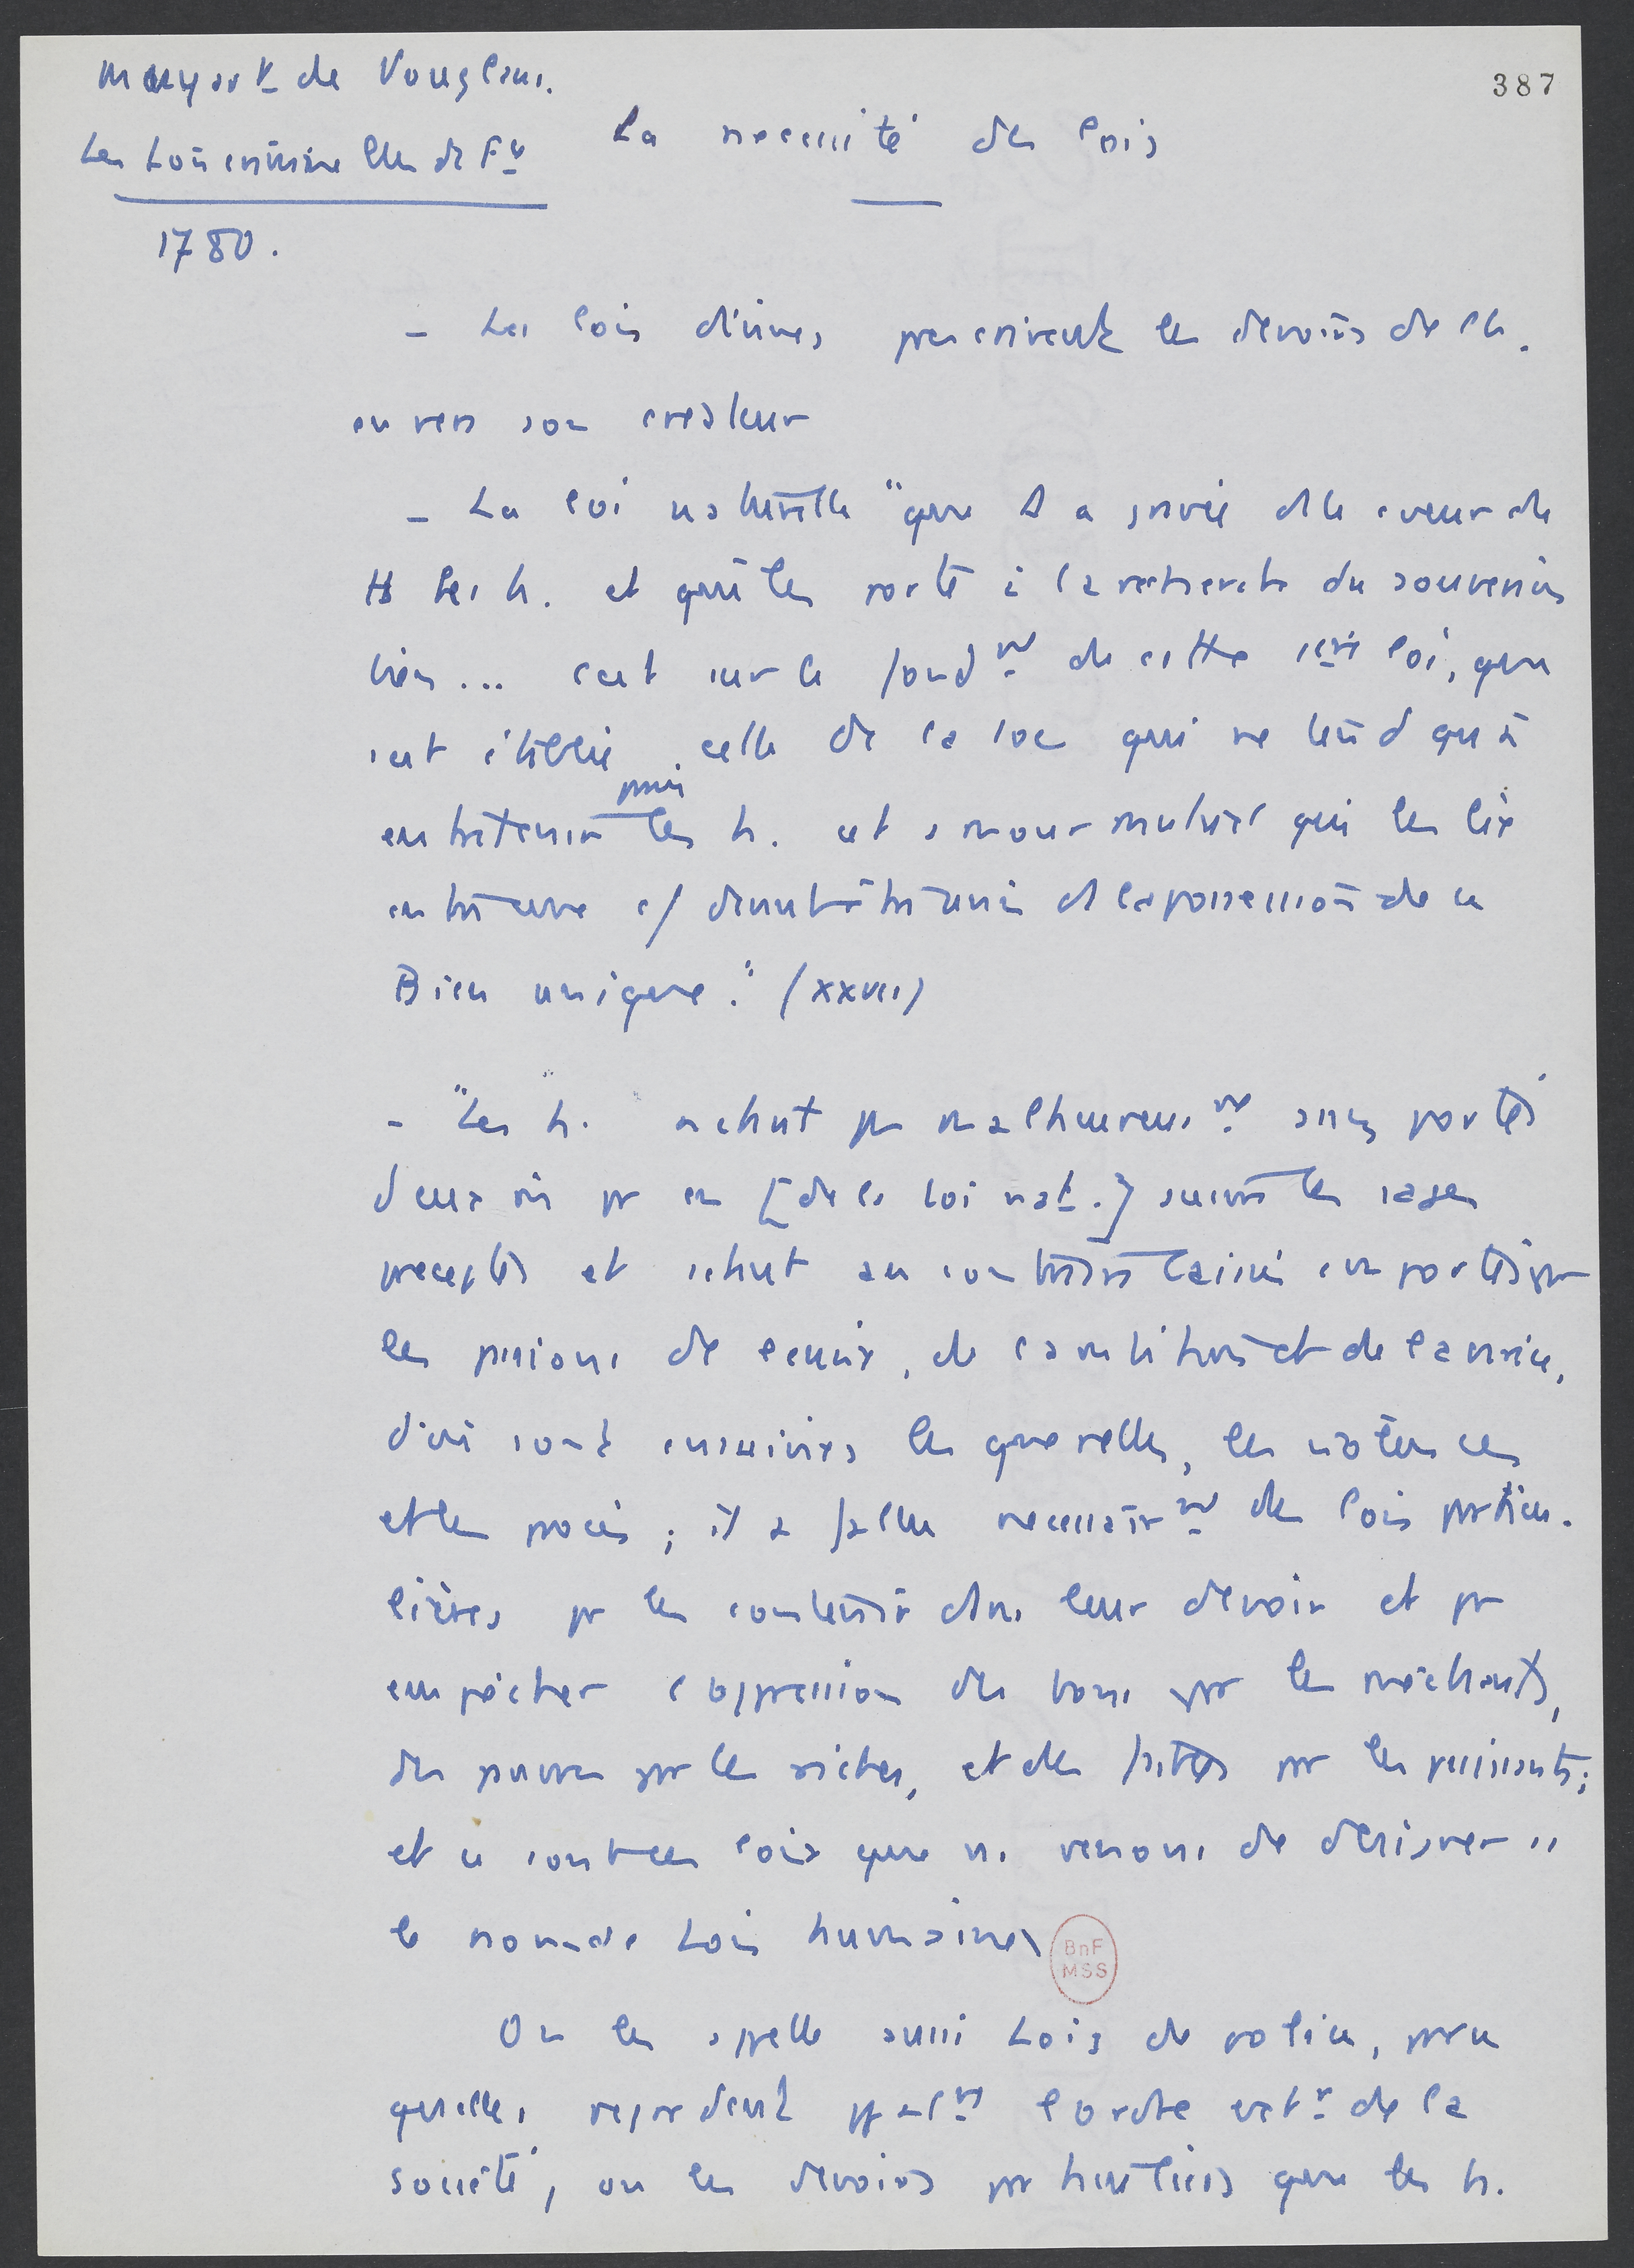 Muyart de Vouglans.
387
Les Lois criminelles de Fce
La necessité des lois
1780.
- Les lois divines prescrivent les devoirs de l'h.
envers son createur
- La loi naturelle "que D a gravée ds le coeur de
tt les h. et qui les porte à la recherche du souverain
bien... c'est sur le fondmt de cette 1ere loi, que
est établie celle de la soc qui ne tend qu'à
entretenir parmi les h. cet amour mutuel qui les lie
entre eux c/ devant être unis ds la possession de ce
Bien unique." (XXVII)
- "Les h. n'etant pas malheureusmt assez portés
d'eux m pr en [de la loi nat.] suivre les sages
preceptes et s'étant au contraire laissé emportés par
les passions de l'envie, de l'ambition et de l'avarice,
d'où sont ensuivies les querelles, les violences
et les procès ; il a fallu necessairmt des lois particu-
lières pr les contenir dans leur devoir et pr
empêcher l'oppression des bons par les méchants,
des pauvres par les riches, et des faibles par les puissants ;
et ce sont ces lois que ns venons de désigner ss
le nom de Lois humaines
BnF
MSS
On les appelle aussi Lois de police, parce
qu'elles regardent ppalmt l'ordre extr de la
société, ou les devoirs particuliers que les h.